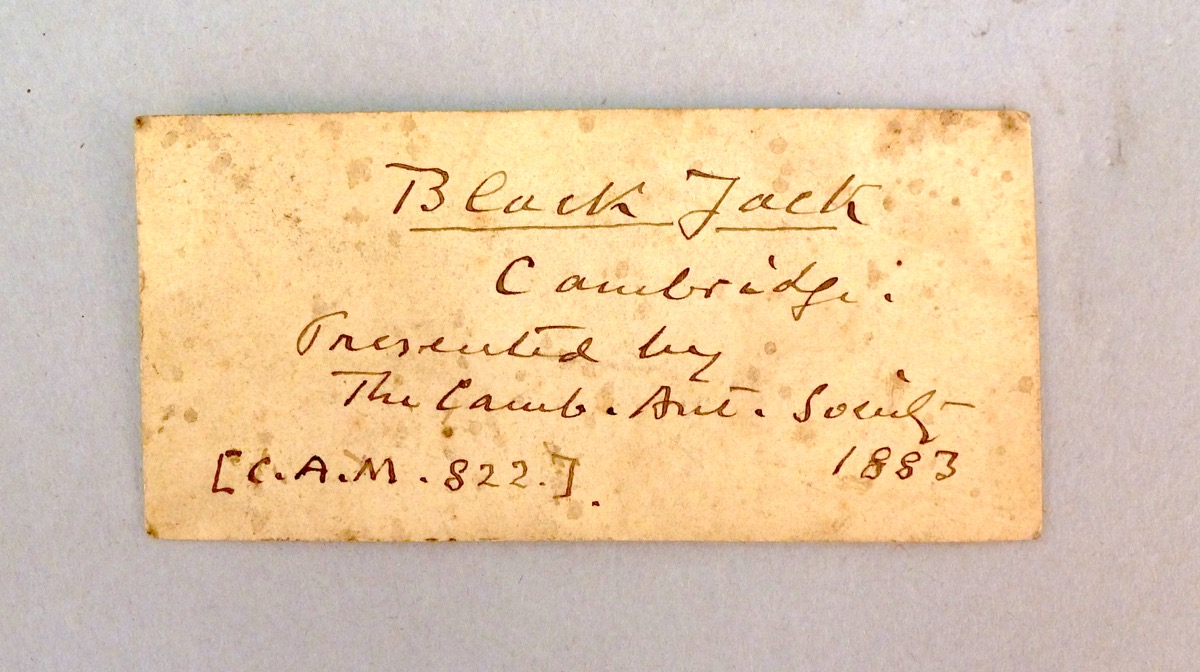 Black Jack
Cambridge.
Presented by
The Camb. Ant. Society
1883
[C.A.M. 822.].